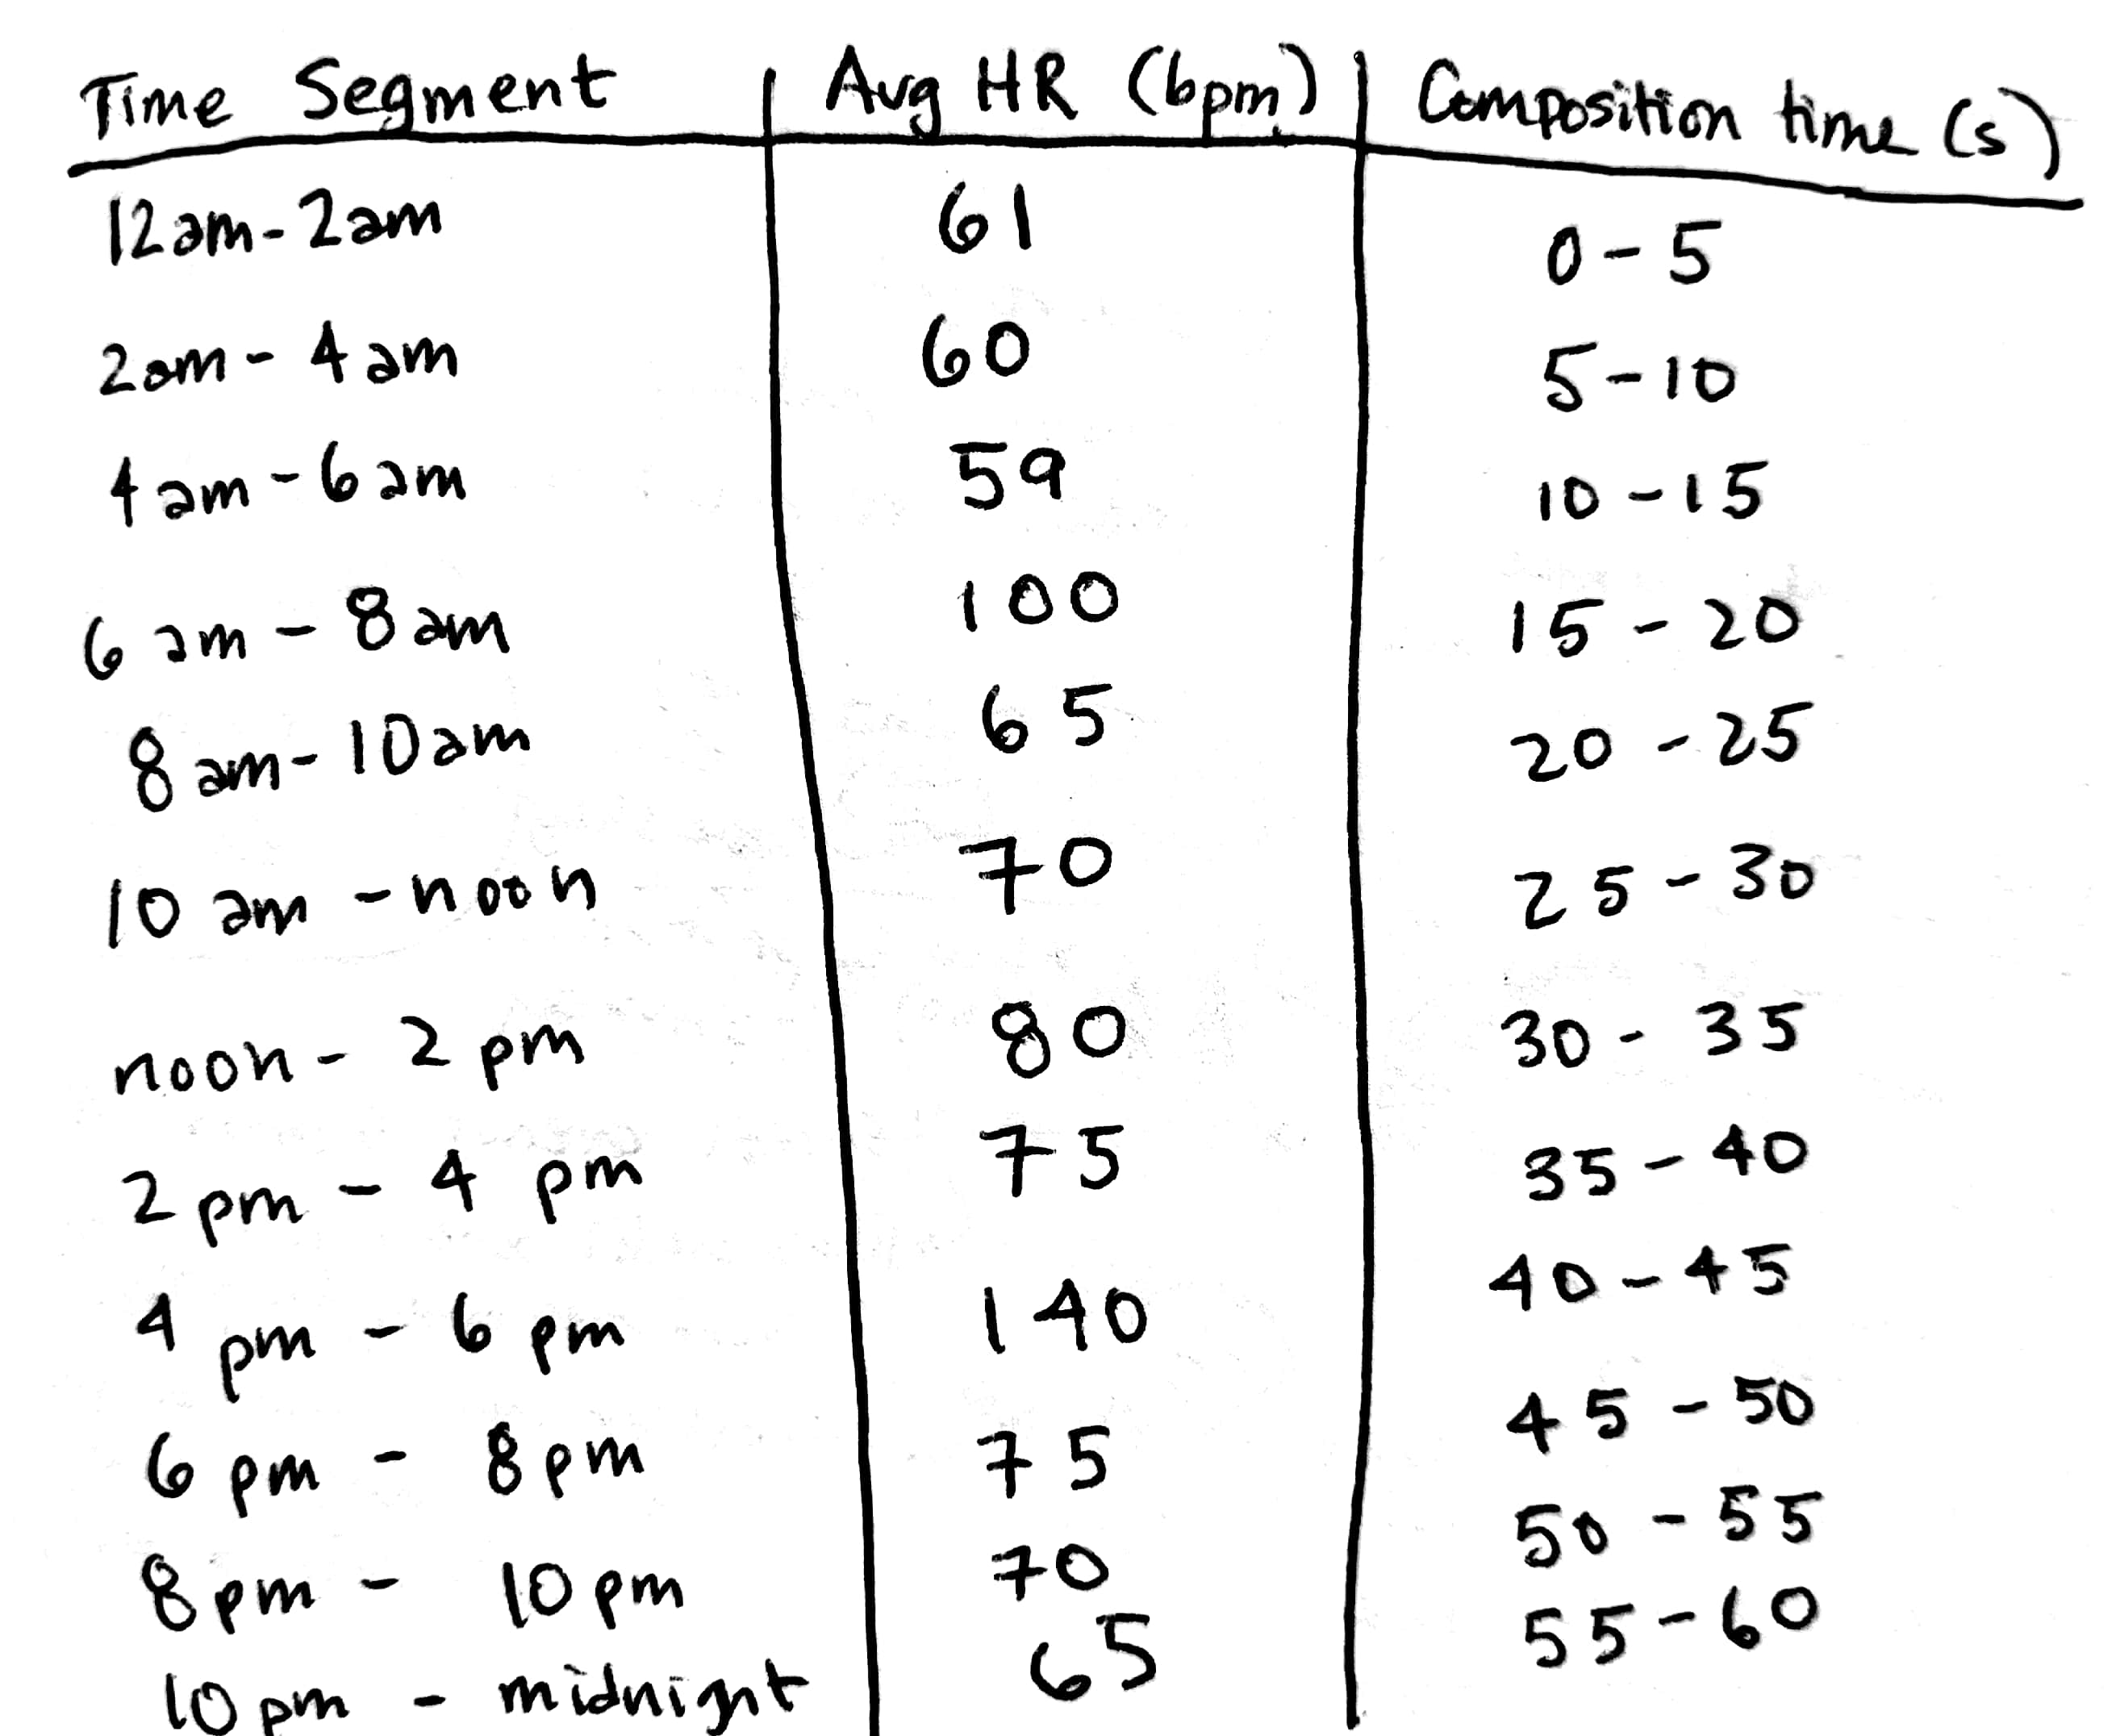 Time Segment Avg HR (bpm) Composition time (s)
12am-2am 61 0-5
2am-4am 60 5-10
4am-6am 59 10-15
6am-8am 100 15-20
8am-10am 65 20-25
10am-noon 70 25-30
noon-2pm 80 30-35
2pm-4pm 75 35-40
4pm-6pm 140 40-45
6pm-8pm 75 45-50
8pm-10pm 70 50-55
10pm-midnight 65 55-60